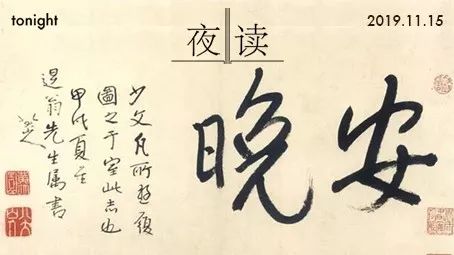 tonight
夜读
2019.11.15
晚安
少文凡所遊履
圖之于室此志也
甲戌夏至
退翁先生属書